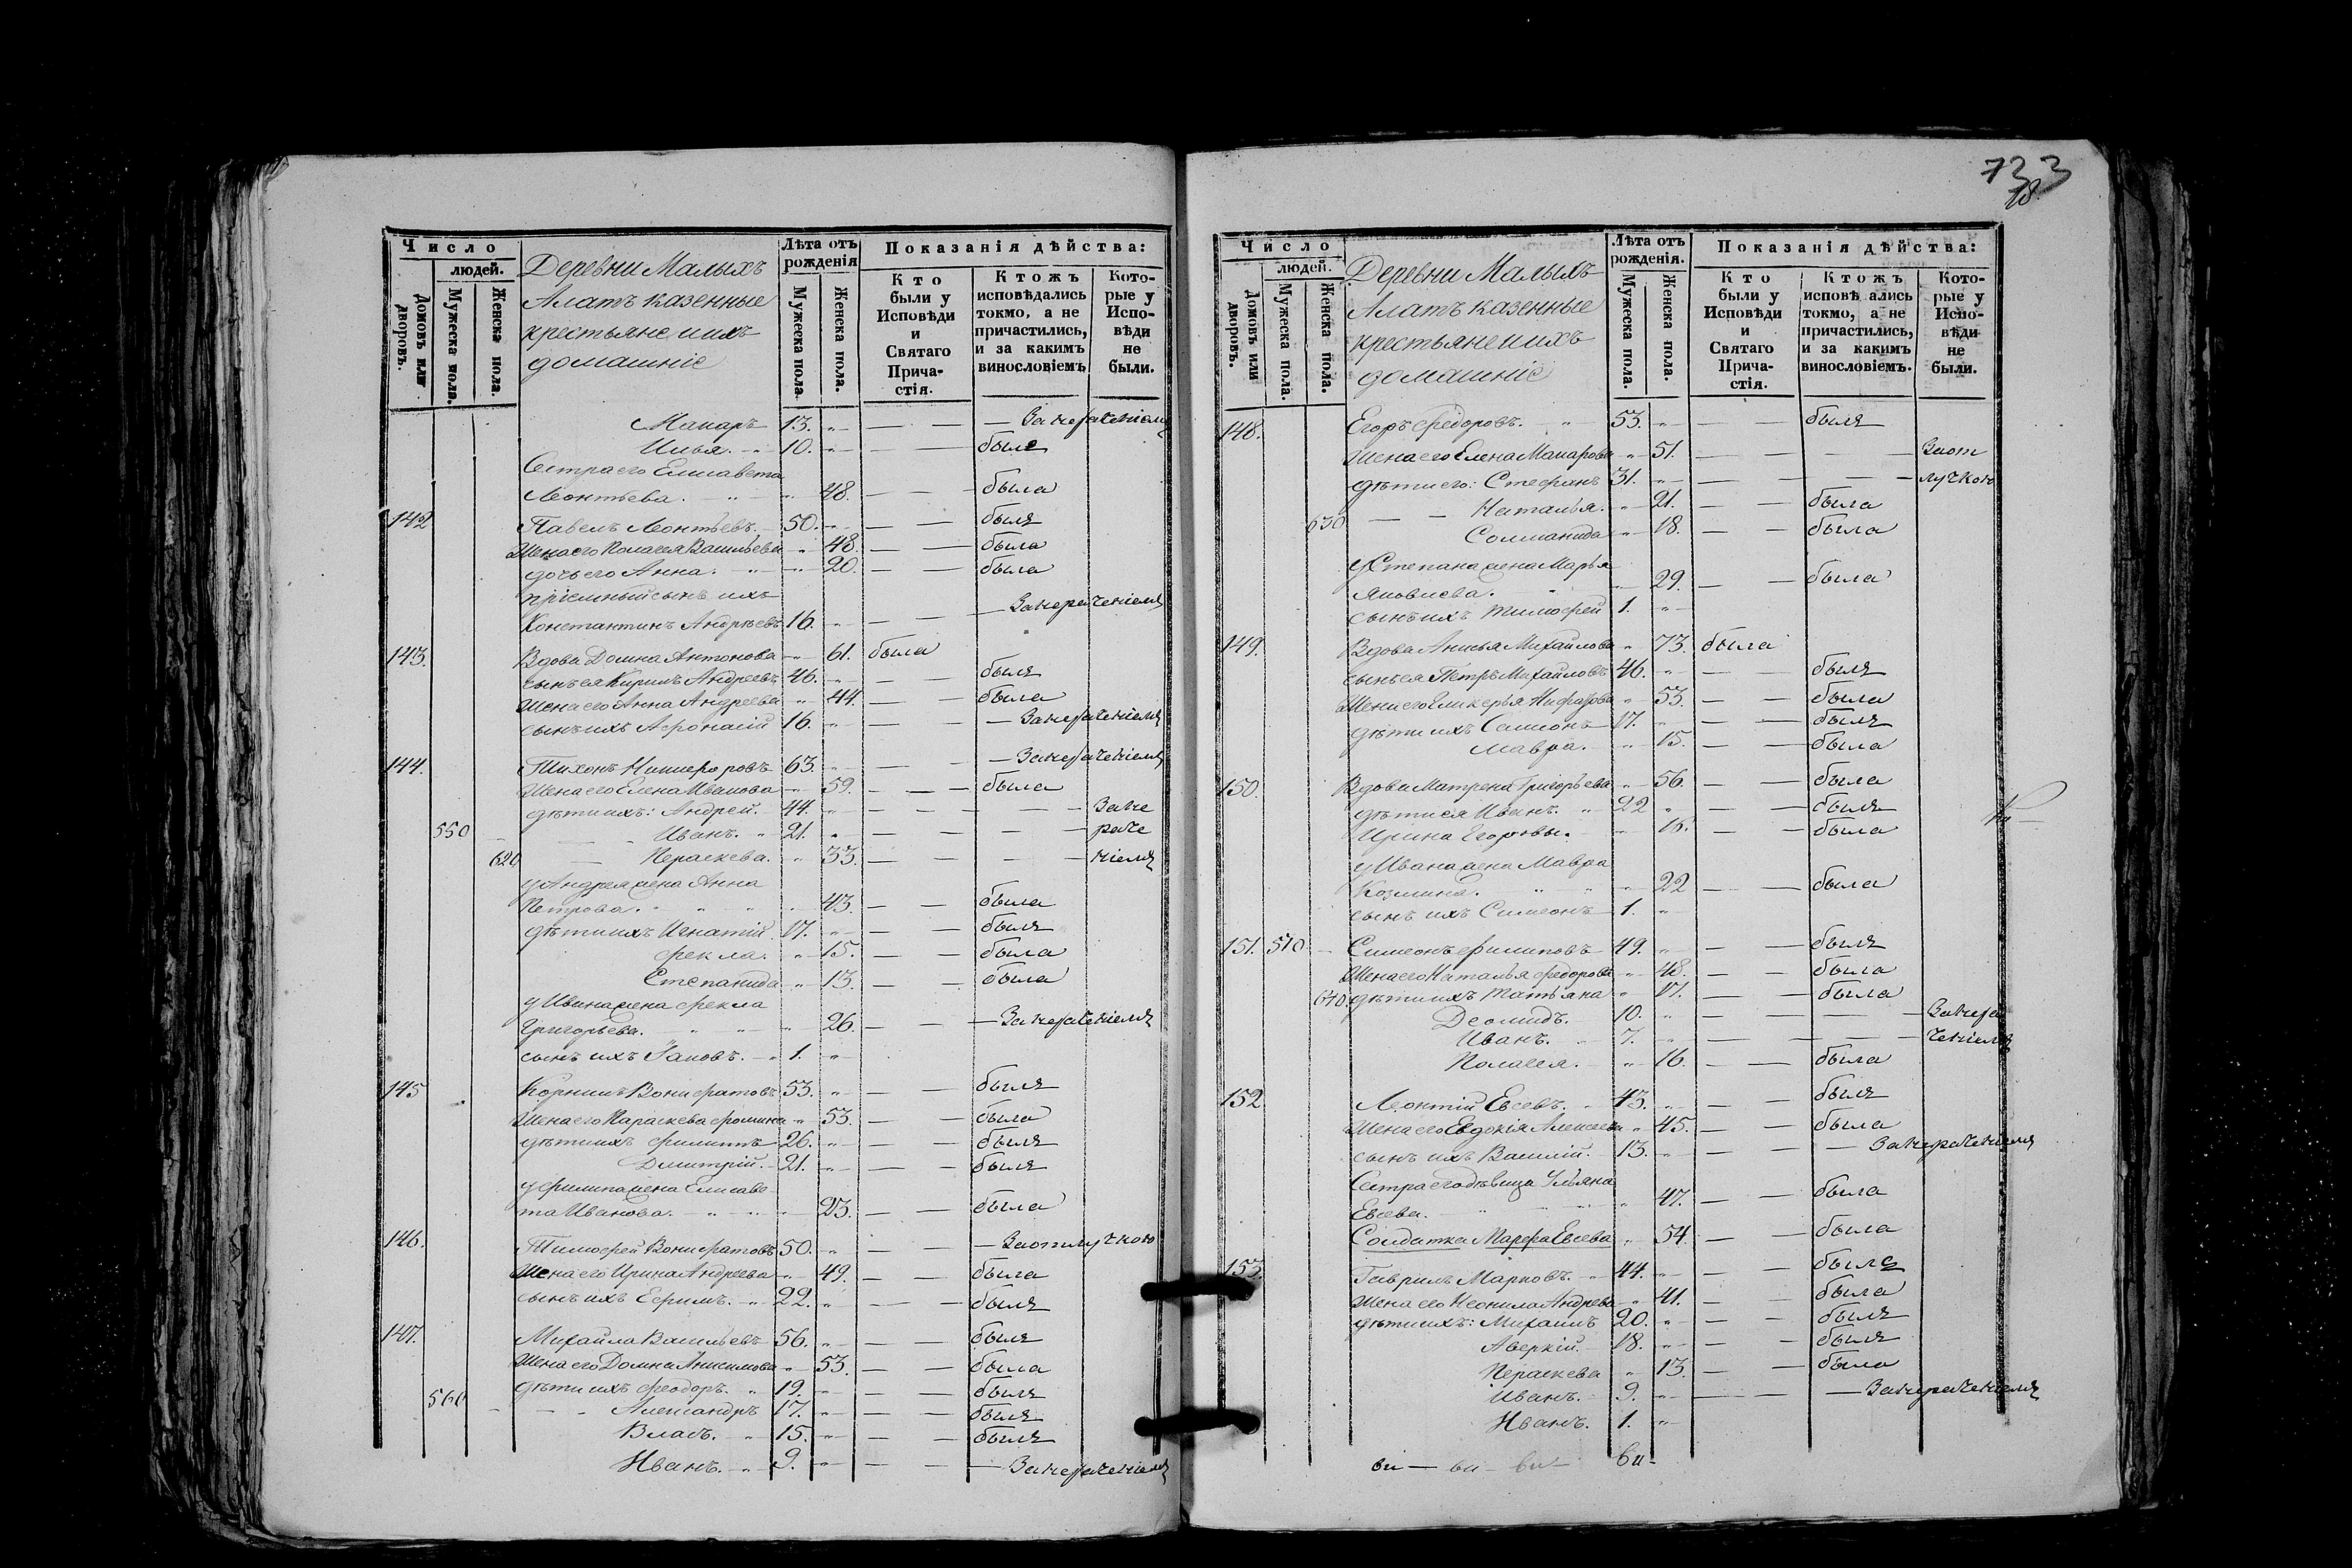 Число
людей.
Домовъ или дворовъ.
Мужеска пола.
Женска пола.
Деревни Малыхъ
Алатъ казенные
крестьяне и ихъ
домашніе
Лѣта отъ рожденія
Мужеска пола.
Женска пола.
Показанія дѣйства:
Кто были у Исповѣди и Святаго Прича-стія.
Ктожъ исповѣдались токмо, а не причастились, и за какимъ винословіемъ
Кото-рые у Испо-вѣди не были.
Макаръ 13. — — — За нераченіемъ
Илья. 10. — — былъ
Сестра его Елисавета
Леонтьева. 48. — — была
142 Павелъ Леонтьевъ. 50. — — былъ
Жена его Пелагея Васильева 48. — — была
дочь его Анна. 20. — — была
пріемный сынъ ихъ
Константинъ Андреевъ 16. — — — За нераченіемъ
143. Вдова Домна Антонова 61. была
сынъ ея Кирилъ Андреевъ 46. — — былъ
Жена его Анна Андреева 44. — — была
сынъ ихъ Афонасій 16. — — — За нераченіемъ
144. Тихонъ Никифоровъ 63. — — — За нераченіемъ
Жена его Елена Иванова 59. — — была
дѣти ихъ: Андрей. 44. — — — За не
550 Иванъ. 21. — — — — раче
620 Параскева. 33. — — — — ніемъ
у Андрея жена Анна
Петрова. 43. — — была
дѣти ихъ Игнатій 17. — — былъ
Фекла. 15. — — была
Степанида 13. — — была
у Ивана жена Фекла
Григорьева. 26. — — — За нераченіемъ
сынъ ихъ Іаковъ. 1.
145 Корнилъ Вонифатовъ 53. — — былъ
Жена его Параскева Фомина 53. — — была
дѣти ихъ Филиппъ 26. — — былъ
Димитрій. 21. — — былъ
у Филипа жена Елисаве
та Иванова. 23. — — была
146. Тимофей Вонифатовъ 50. — — — За отлучкою
Жена его Ирина Андреева 49. — — была
сынъ ихъ Ефимъ. 22. — — былъ
147. Михайла Васильевъ 56. — — былъ
Жена его Домна Анисимова 53. — — была
дѣти ихъ Феодоръ. 19. — — былъ
560 Александръ 17. — — былъ
Власъ. 15. — — былъ
Иванъ. 9. — — — За нераченіемъ
733
78.
Число
людей.
Домовъ или дворовъ.
Мужеска пола.
Женска пола.
Деревни Малыхъ
Алатъ казенные
крестьяне и ихъ
домашніе
Лѣта отъ рожденія.
Мужеска пола.
Женска пола.
Показанія дѣйства:
Кто были у Исповѣди и Святаго Прича-стія.
Ктожъ исповѣ ались токмо, а не причастились, и за какимъ винословіемъ.
Кото-рые у Испо-вѣди не были.
148. Егоръ Федоровъ. 53. — — былъ
Жена его Елена Макарова 51. — — — За от
дѣти его: Стефанъ 31. — — — лучкою
Наталья. 21. — — была
630 Соломанида 18. — — была
у Степана жена Марья
Яковлева. 29. — — была
сынъ ихъ Тимофей 1.
149. Вдова Анисья Михайлова 73. была
сынъ ея Петръ Михайловъ 46. — — былъ
Жена его Гликерья 53. — — была
дѣти ихъ Симионъ 17. — — былъ
Мавра. 15. — — была
150. Вдова Матрена Григорьева 56. — — была
дѣти ея Иванъ. 22 — — былъ
Ирина Егоровы. 16. — — была
у Ивана жена Мавра
Козмина. 22 — — была
сынъ ихъ Симеонъ 1.
151. 570 Симеонъ Филиповъ 49. — — былъ
Жена его Наталья Федорова 48. — — была
640. дѣти ихъ Татьяна 17. — — была
Деомидъ. 10. — — — За нера
Иванъ. 7. — — — ченіемъ
Пелагея. 16. — — была
152 Леонтій Евсевъ. 43. — — былъ
Жена его Евдокія Алексеева 45. — — была
сынъ ихъ Василій. 13. — — — За нераченіемъ
Сестра его дѣвица Ульяна
Евсева. 47. — — была
Солдатка Марфа Евсева 54. — — была
153. Гаврилъ Марковъ. 44. — — былъ
Жена его Неонила Андреева 41. — — была
дѣти ихъ: Михаилъ 20. — — былъ
Аверкій. 18. — — былъ
Параскева 13. — — была
Иванъ. 9. — — — За нераченіемъ
Иванъ. 1.